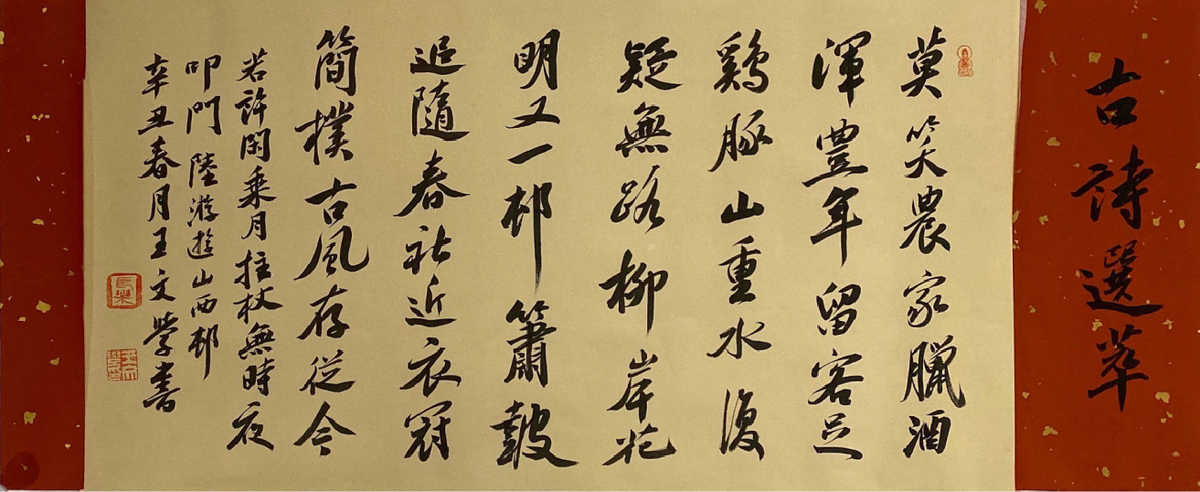 古詩選萃
莫笑農家臘酒
渾豊年留客足
鷄豚山重水復
疑無路柳岸花
明又一邨簫鼓
追隨春社近衣冠
簡樸古風存從今
若許閑乘月拄杖無時夜
叩門 陸游遊山西邨
辛丑春月王文學書